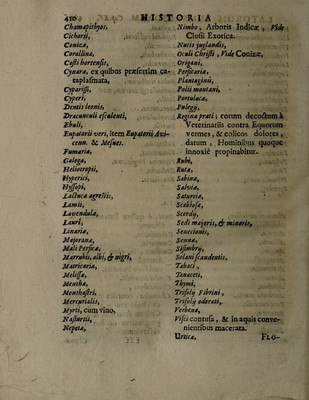 420 HISTORIA
Chamæpithyos.
Cichorii,
Conizæ,
Corallinæ.
Costi hortensis,
Cynaræ, ex quibus præsertim ca-
taplasmata,
Cyparissi,
Cyperi,
Dentis leonis,
Dracunculi esculenti,
Ebuli,
Eupatorii veri, item Eupatorii Avi-
cenn. & Mesues.
Fumariæ,
Galegæ,
Heliotropii,
Hyperici,
Hyssopi,
Lactucæ agrestis,
Lamii,
Lavendulæ,
Lauri,
Linariæ,
Majoranæ,
Mali Persicæ.
Marrubii, albi, & nigri,
Matricariæ,
Melissæ,
Menthæ,
Menthastri,
Mercurialis,
Myrti, cum vino,
Nasturtii,
Nepetæ,
Nimbo, Arboris Indicæ, Vide
Clusii Exotica.
Nucis juglandis,
Oculi Christi, Vide Conizæ,
Origani,
Persicariæ,
Plantaginis,
Polii montani,
Portulacæ,
Pulegii,
Regina prati; eorum decoctum à
Veterinariis contra Equorum
vermes, & colicos dolores,
datum, Hominibus quoque
innoxiè propinabitur.
Rubi,
Rutæ,
Sabinæ,
Salviæ,
Saturciæ,
Scabiosæ,
Scordii,
Sedi majoris, & minoris,
Senecionis,
Sennæ,
Sisimbrii,
Solani scandentis.
Tabaci,
Tanaceti,
Thymi,
Trifolii Fibrini,
Trifolii odorati,
Verbenæ,
Visci contusa, & in aquis conve-
nientibus macerata.
Urticæ, FLO-